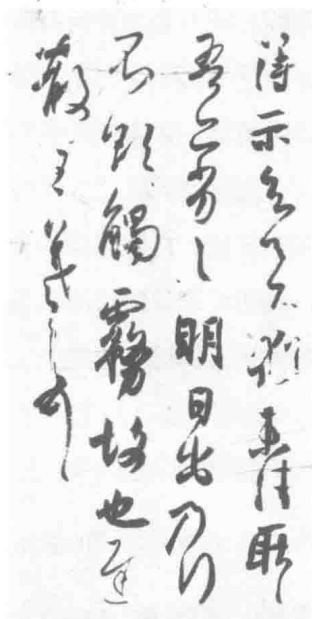 得示知足下猶未佳耿
吾亦劣劣明日出乃行
不欲觸霧故也遲
散王羲之頓首